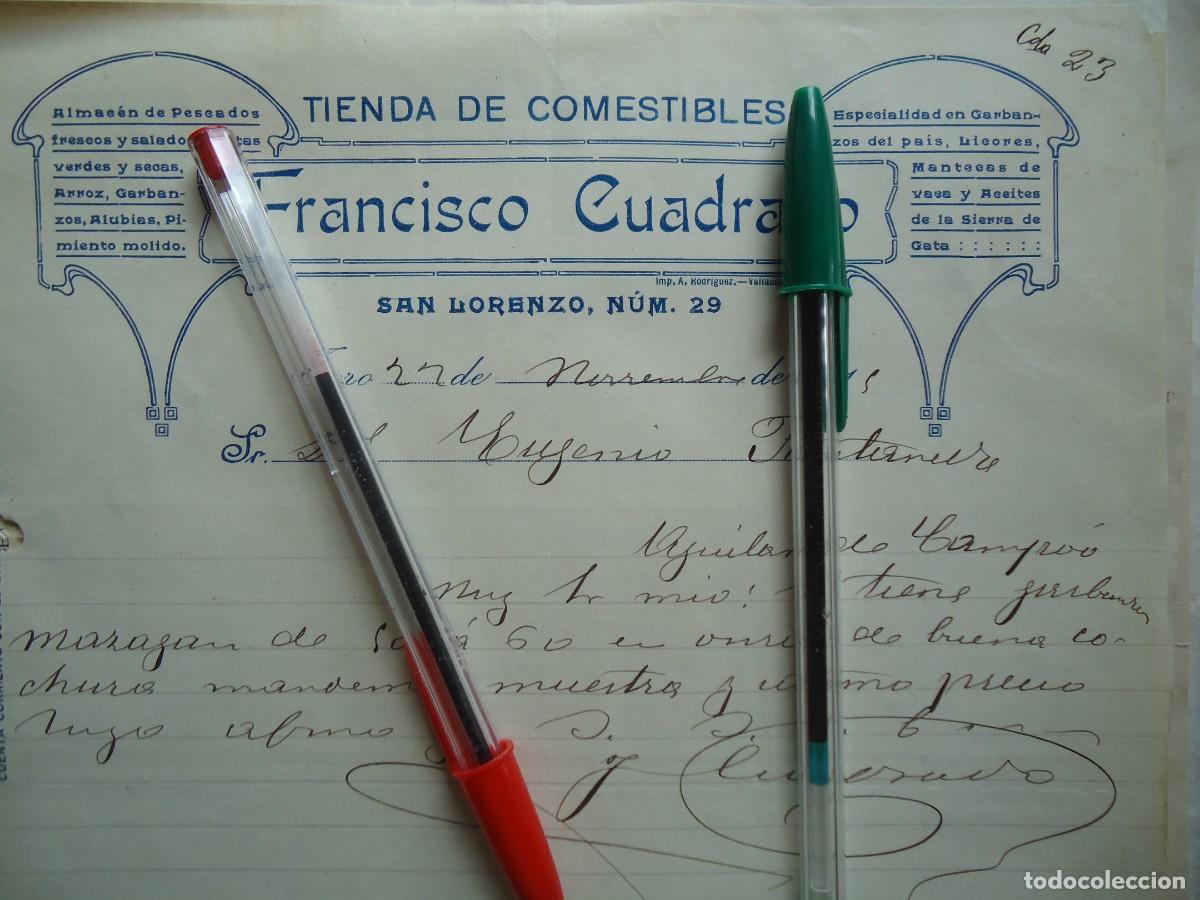 Cda 23
TIENDA DE COMESTIBLES
Almacén de Pescados
frescos y salado tas
verdes y secas,
Arroz, Garban-
zos, Alubias, Pi-
miento molido.
Francisco Cuadra o
Especialidad en Garban-
zos del país, Licores,
Mantecas de
vaca y Aceites
de la Sierra de
Gata : : : : : :
Imp. A. Rodríguez.—Vallado
SAN LORENZO, NÚM. 29
oro 27 de Noviembre de
Sr. Eugenio
Aguilar de Campoó
Muy Sr mio! tiene garbanzos
mazagan de 50 á 60 en onza de buena co-
chura manden muestra y ultimo precio
suyo afmo S.
Cuadrado
todocoleccion